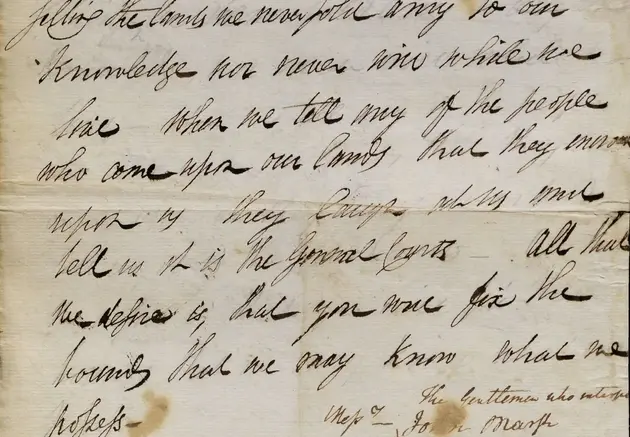 selling the lands we never sold any to our
Knowledge nor never will while we
live when we tell any of the people
who come upon our lands that they incro
upon us they laugh at us and
tell us it is the General Courts all that
we desire is, that you will fix the
bounds that we may Know what we
possess—
The Gentlemen who interp
Messrs John Marsh